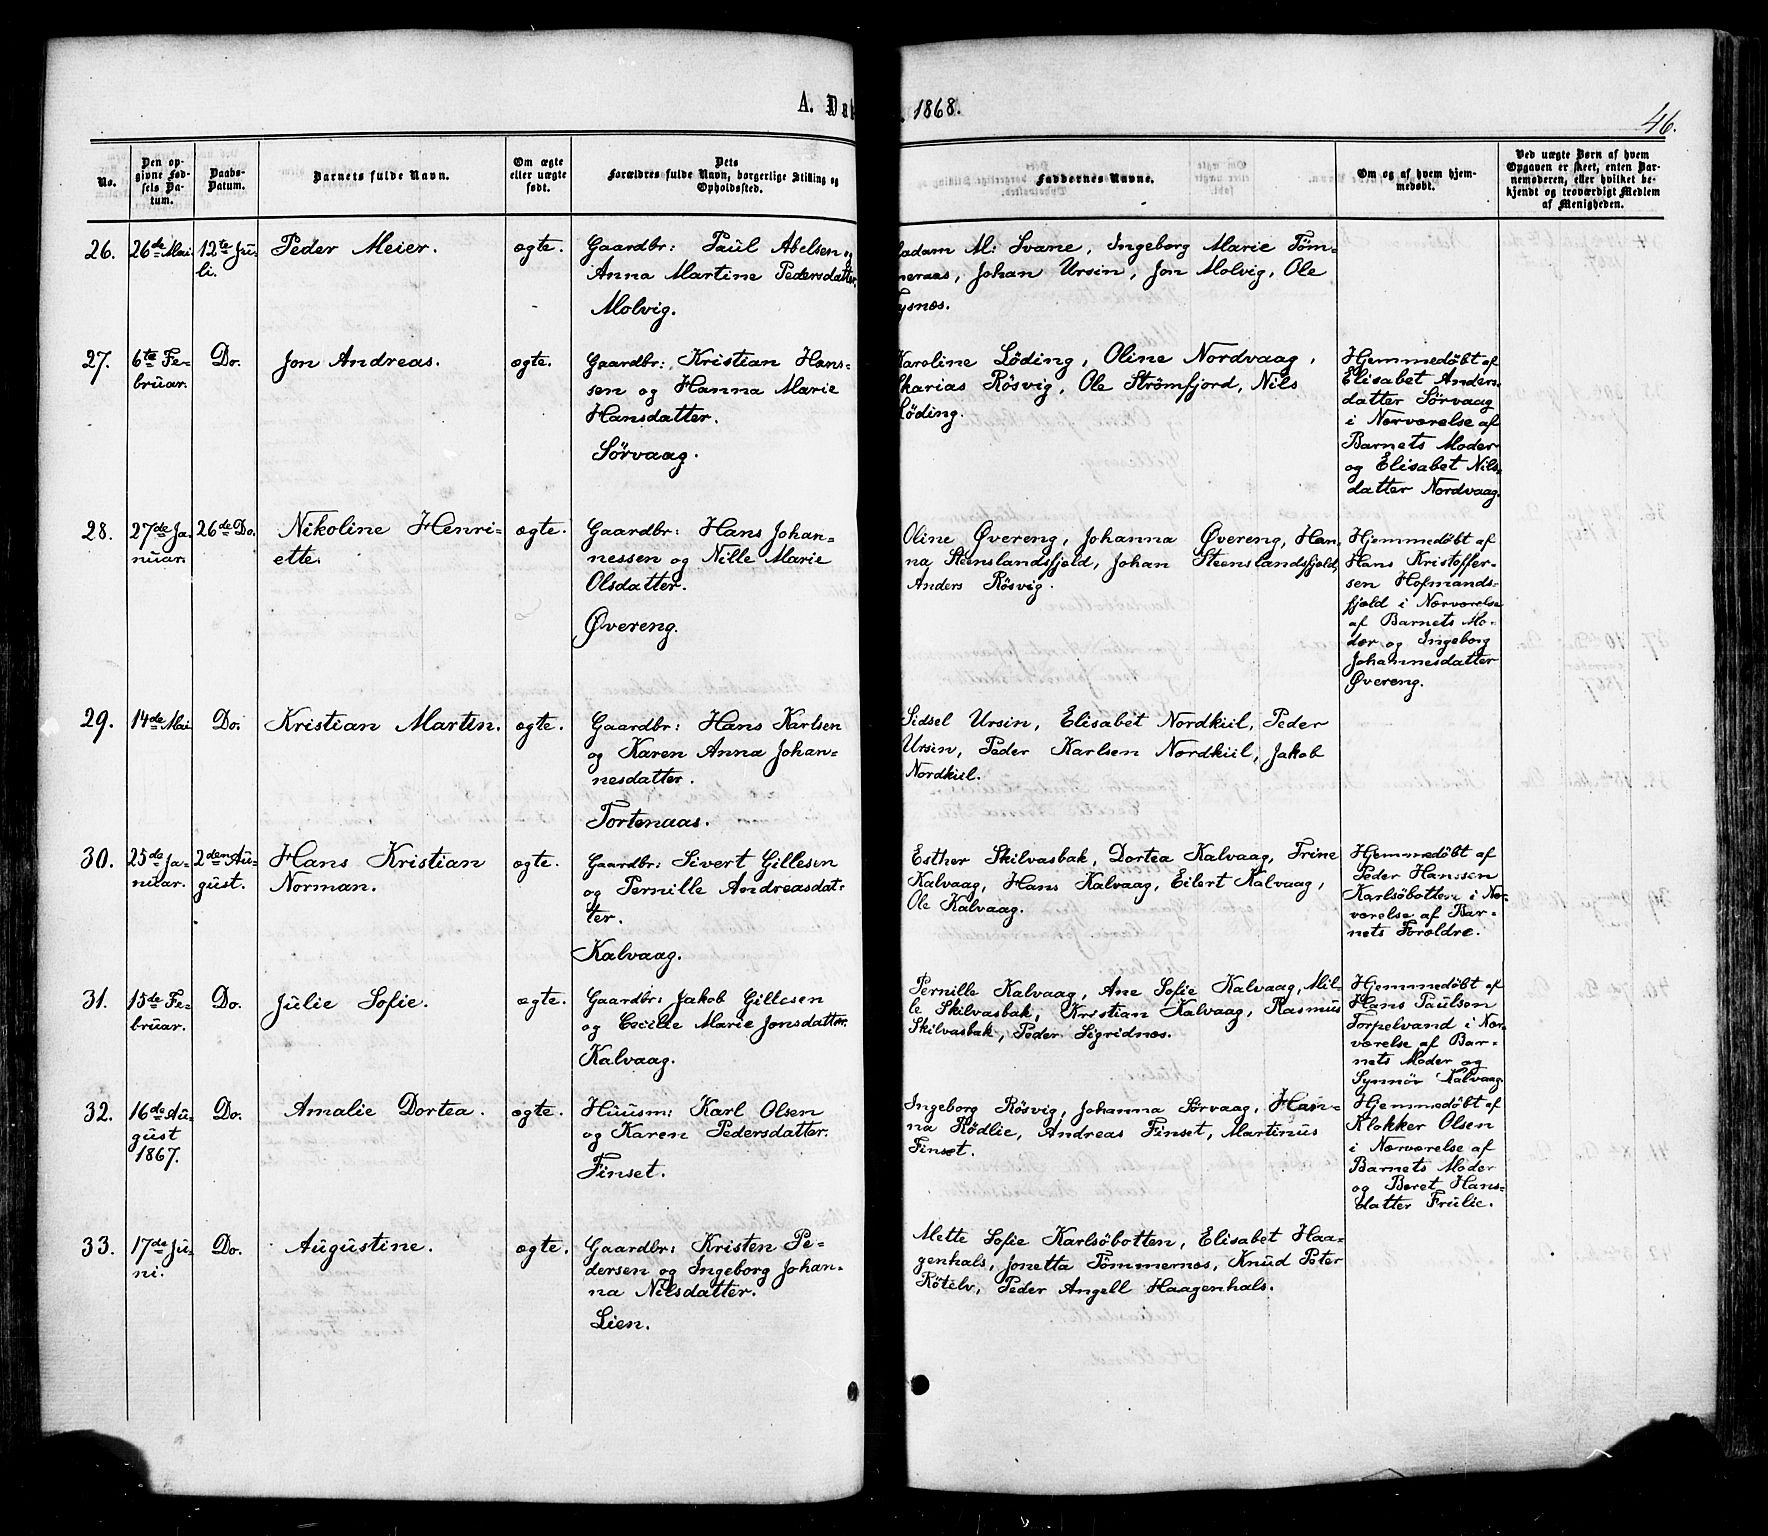 A. Da
1868.
46.
No.
Den op-
givne Fød-
sels Da-
tum.
Daabs-
Datum.
Barnets fulde Navn.
Om ægte
eller uægte
født.
Dets
Forældres fulde Navn, borgerlige Stilling og
Opholdssted.
Faddernes Navne.
Om og af hvem hjem-
medøbt.
Ved uægte Børn af hvem
Opgaven er skeet, enten Bar-
nemoderen, eller hvilket be-
kjendt og troværdigt Medlem
af Menigheden.
26.
26de Mai
12te Ju-
li.
Peder Meier.
ægte.
Gaardbr: Paul Abelsen og
Anna Martine Pedersdatter.
Molvig.
adam M: Svane, Ingeborg Marie Töm-
meraas, Johan Ursin, Jon Molvig, Ole
ysnæs.
27.
6te Fe-
bruar.
Do.
Jon Andreas.
ægte.
Gaardbr: Kristian Hans-
sen og Hanna Marie
Hansdatter.
Sörvaag.
Karoline Löding, Oline Nordvaag,
karias Rösvig, Ole Strömfjord, Nils
Löding.
Hjemmedöbt af
Elisabet Anders
datter Sörvaag
i Nærværelse af
Barnets Moder
og Elisabet Nils-
datter Nordvaag.
28.
27de Ja-
nuar.
26de Do.
Nikoline Henri-
ette.
ægte.
Gaardbr: Hans Johan-
nessen og Nille Marie
Olsdatter.
Øvereng.
Oline Øvereng, Johanna Øvereng, Han-
na Steenslandsfjeld, Johan Steenslandsfjeld,
Anders Rösvig.
Hjemmedöbt af
Hans Kristoffer-
sen Hofmands-
fjæld i Nærværelse
af Barnets Mo-
der og Ingeborg
Johannesdatter
Øvereng.
29.
14de Mai
Do.
Kristian Martin.
ægte.
Gaardbr: Hans Karlsen
og Karen Anna Johan-
nesdatter.
Tortenaas.
Sidsel Ursin, Elisabet Nordkiil, Peder
Ursin, Peder Karlsen Nordkiil, Jakob
Nordkiil.
30.
25de Ja-
nuar.
2den Au-
gust.
Hans Kristian
Norman.
ægte.
Gaardbr: Sivert Gillesen
og Pernille Andreasdat-
ter.
Kalvaag.
Esther Skilvasbak, Dortea Kalvaag, Trine
Kalvaag, Hans Kalvaag, Eilert Kalvaag,
Ole Kalvaag.
Hjemmedöbt af
Peder Hanssen
Karlsöbotten i Næ-
værelse af Bar-
nets Forældre.
31.
15de Fe-
bruar.
Do.
Julie Sofie.
ægte.
Gaardbr: Jakob Gillesen
og Cecilie Marie Jonsdatter.
Kalvaag.
Pernille Kalvaag, Ane Sofie Kalvaag, Mil-
le Skilvasbak, Kristian Kalvaag, Rasmus
Skilvasbak, Peder Sigridnæs.
Hjemmedöbt af
Hans Paulsen
Torpelvand i Nær-
værelse af Bar-
nets Moder og
Synnöv Kalvaag.
32.
16de Au-
gust
1867.
Do.
Amalie Dortea.
ægte.
Huusm: Karl Olsen
og Karen Pedersdatter.
Finset.
Ingeborg Rösvig, Johanna Sörvaag, Han-
na Rödlie, Andreas Finset, Martinus
Finset.
Hjemmedöbt af
Klokker Olsen
i Nærværelse af
Barnets Moder
og Beret Hans-
datter Frulie.
33.
17de Ju-
ni.
Do.
Augustine.
ægte.
Gaardbr: Kristen Pe-
dersen og Ingeborg Johan-
na Nilsdatter.
Lien.
Mette Sofie Karlsöbotten, Elisabet Haa-
genhals, Jonetta Tömmernæs, Knud Peter
Rötelv, Peder Angell Haagenhals.